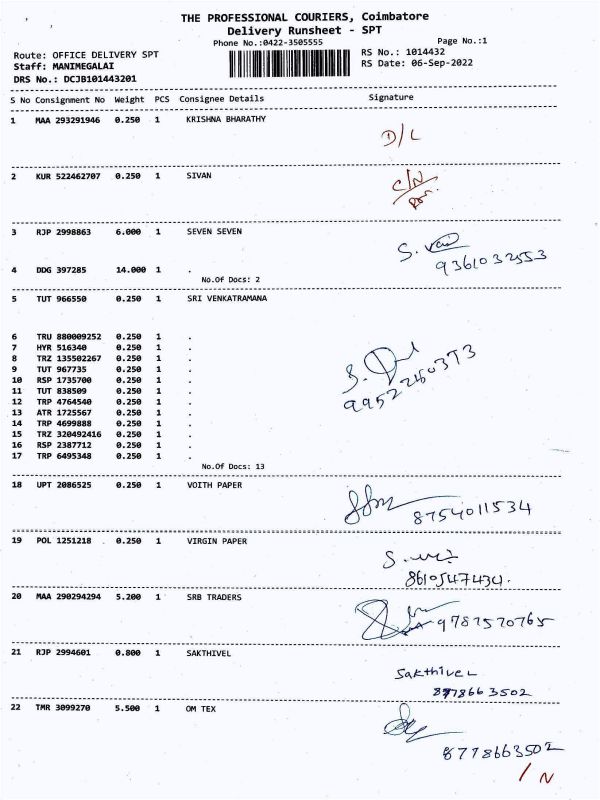 THE PROFESSIONAL COURIERS, Coimbatore
Delivery Runsheet - SPT
Phone No.:0422-3505555
Page No.:1
Route: OFFICE DELIVERY SPT
RS No.: 1014432
Staff: MANIMEGALAI
RS Date: 06-Sep-2022
DRS No.: DCJB101443201
S No Consignment No Weight PCS Consignee Details Signature
1 MAA 293291946 0.250 1 KRISHNA BHARATHY
D/L
2 KUR 522462707 0.250 1 SIVAN
C/N
3 RJP 2998863 6.000 1 SEVEN SEVEN
9361032553
4 DDG 397285 14.000 1 .
No.Of Docs: 2
5 TUT 966550 0.250 1 SRI VENKATRAMANA
6 TRU 880009252 0.250 1 .
7 HYR 516340 0.250 1 .
8 TRZ 135502267 0.250 1 .
9 TUT 967735 0.250 1 .
10 RSP 1735700 0.250 1 .
11 TUT 838509 0.250 1 .
12 TRP 4764540 0.250 1 .
13 ATR 1725567 0.250 1 .
14 TRP 4699888 0.250 1 .
15 TRZ 320492416 0.250 1 .
16 RSP 2387712 0.250 1 .
17 TRP 6495348 0.250 1 .
No.Of Docs: 13
18 UPT 2086525 0.250 1 VOITH PAPER
8754011534
19 POL 1251218 0.250 1 VIRGIN PAPER
8610547434.
20 MAA 290294294 5.200 1 SRB TRADERS
9787570765
21 RJP 2994601 0.800 1 SAKTHIVEL
Sakthivel
8778663502
22 TMR 3099270 5.500 1 OM TEX
8778663502
/ N